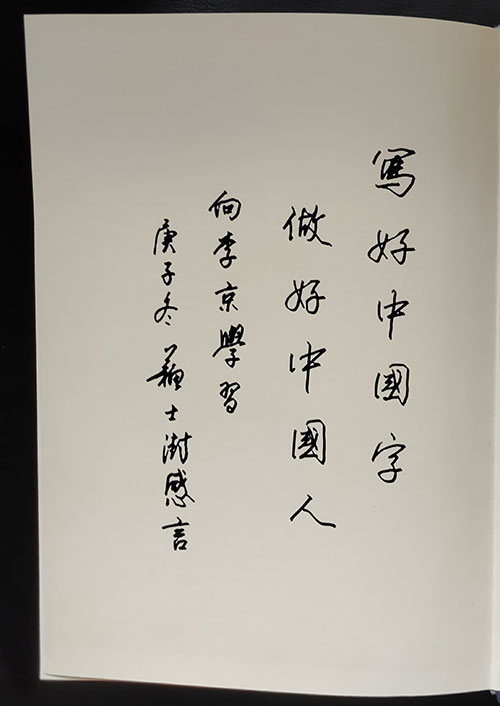 寫好中國字
做好中國人
向李京學習
庚子冬蘇士澍感言